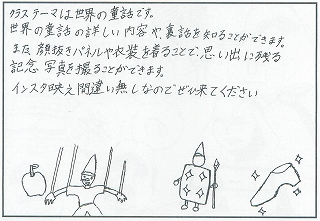 クラステーマは世界の童話です。
世界の童話の詳しい内容や、裏話を知ることができます。
また 顔抜きパネルや衣装を着ることで、思い出に残る
記念写真を撮ることができます。
インスタ映え間違い無しなのでぜひ来てください